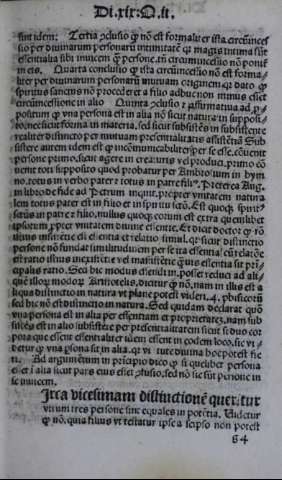 Di. xix. Q. ii.
sint idem. Tertia xclusio q̃ nō est formaliter ista circūinces
sio per diuinarum personarū intimitatē q̃ magis intima sūt
essentialia sibi inuicem q̃ persone. tn̄ circuincessio nō ponit̃
in eis. Quarta conclusio q̃ ista circūincessio nō est forma
liter per diuinarum personarū mutuam originem. q̃ dato q̃
spiritus sanctus nō procederet a filio adhuc non minus esset
circūincessione in alio. Quinta xclusio ē affirmatiua q̃
positum q̃ vna persona est in alia nō sicut natura in supposi
to, nec sicut forma in materia, sed sicut subsistēs in subsistente
realiter distincto per mutuam presentialitatē assistētiā. Sub
sistere autem idem est q̃ incōmunicabiliter per se esse. cōuenit
persone primo. sicut agere in creaturis vel produci. primo cō
uenit toti supposito quod probatur per Ambrosium in hym
no. totus in verbo pater totus in patre filius. Preterea Aug.
in libro de fide ad Petrum inquit. propter vnitatem natura
lem totus pater est in filio et in spiritu sctō. Est quoq̃ spirit9
sctūs in patre et filio, nullus quoq̃ eorum est extra quemlibet
ipsorum propter vnitatem diuine essentie. Et dicit doctor q̃ rō
huius inexistētie est essentia et relatio simul. q̃ sicut distinctio
persone nō fundat similitudinem per se in essentia et relatione
est ratio istius inexistētie
palis ratio. Sed hic modus essendi in. posset reduci ad ali
quē illoꝝ modoꝝ Aristotelis. dicitur q̃ nō. nam in illis est a
liqua distinctio in natura vt plane potest videri. 4. phisicorū
sed hic nō est distinctio in natura. Sed quidam declarāt quō
vna persona est in alia per essentiam et proprietates. nam sub
sistēs est in alio subsistēte per presentialitatem sicut si duo cor
pora que essent essentialiter idem essent in eodem loco. sic vi
detur q̃ vna psona sit in alia. q̃ virtute diuina hoc potest fie
ri. Ad argumentum in principio dico q̃ si quelibet persona
esset in alia sicut pars eius esset xclusio. sed nō sic sūt persone in
se inuicem.
Irca vicesimam distinctionē queritur
vtrum tres persone sint equales in potētia. Videtur
q̃ nō. quia filius vt testatur ipse a seipso non potest
64